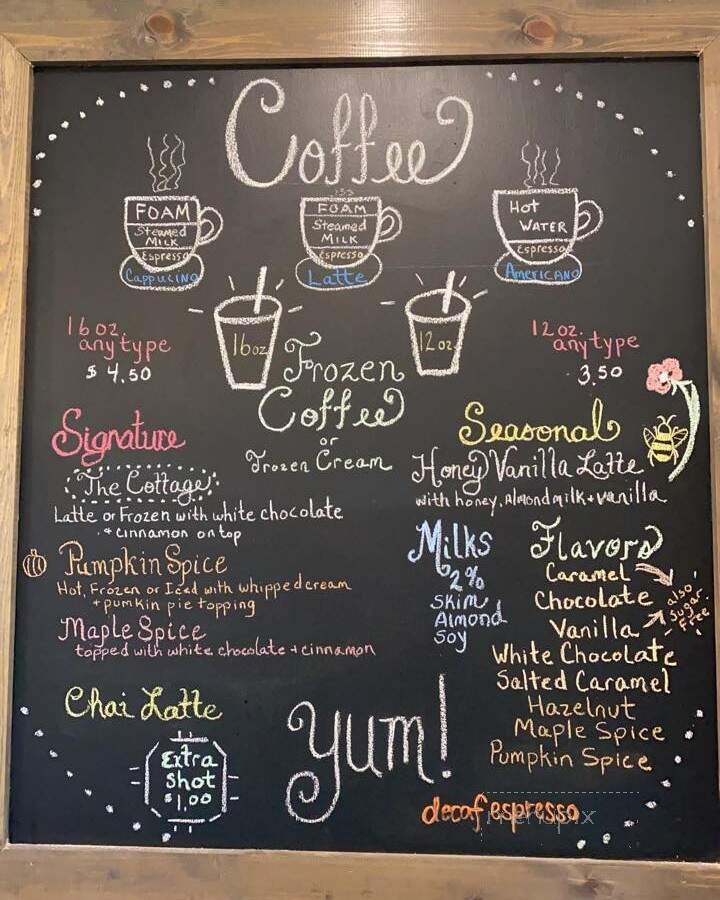 Coffee
FOAM
Steamed
MILK
Espresso
Cappucino
FOAM
Steamed
MILK
Espresso
Latte
Hot
WATER
Espresso
AMERICANO
16 oz.
any type
$ 4.50
16oz
12oz
12 oz.
any type
3.50
Frozen
Coffee
or
Frozen Cream
Signature
The Cottage
Latte or Frozen with white chocolate
+ cinnamon on top
Pumpkin Spice
Hot, Frozen or Iced with whipped cream
+ pumkin pie topping
Maple Spice
topped with white chocolate + cinnamon
Chai Latte
Extra
Shot
$1.00
Seasonal
Honey Vanilla Latte
with honey, Almond milk + vanilla
Milks
2%
Skim
Almond
Soy
Flavors
Caramel
Chocolate
Vanilla
also
Sugar
Free
White Chocolate
Salted Caramel
Hazelnut
Maple Spice
Pumpkin Spice
yum!
decaf espresso
menupix